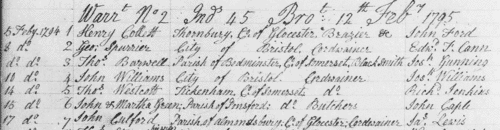 Warrt. No 2 Ind 45 Brot. 12th Feby 1795
5 Feby. 1794 1 Henry Collett Thornbury, C. of Glocester Brazier & John Ford
8 do. 2 Geo. Spurrier City of Bristol, Cordwainer Edwd. J. Cann
do do. 3 Thos. Barwell Parish of Bedminster, C. of Somerset, Blacksmith Jos. Gunning
10 do. 4 John Williams City of Bristol. Cordwainer Jos. Williams
14 do 5 Thos. Westcott Tickenham, C. of Somerset, do Richd. Jenkins
15 do 6 John & Martha Green, Parish of do. Butchers John Caple
17 do. 7 John Parish of Almondsbury, C. of Glocester, Cordwainer Jas. Lewis